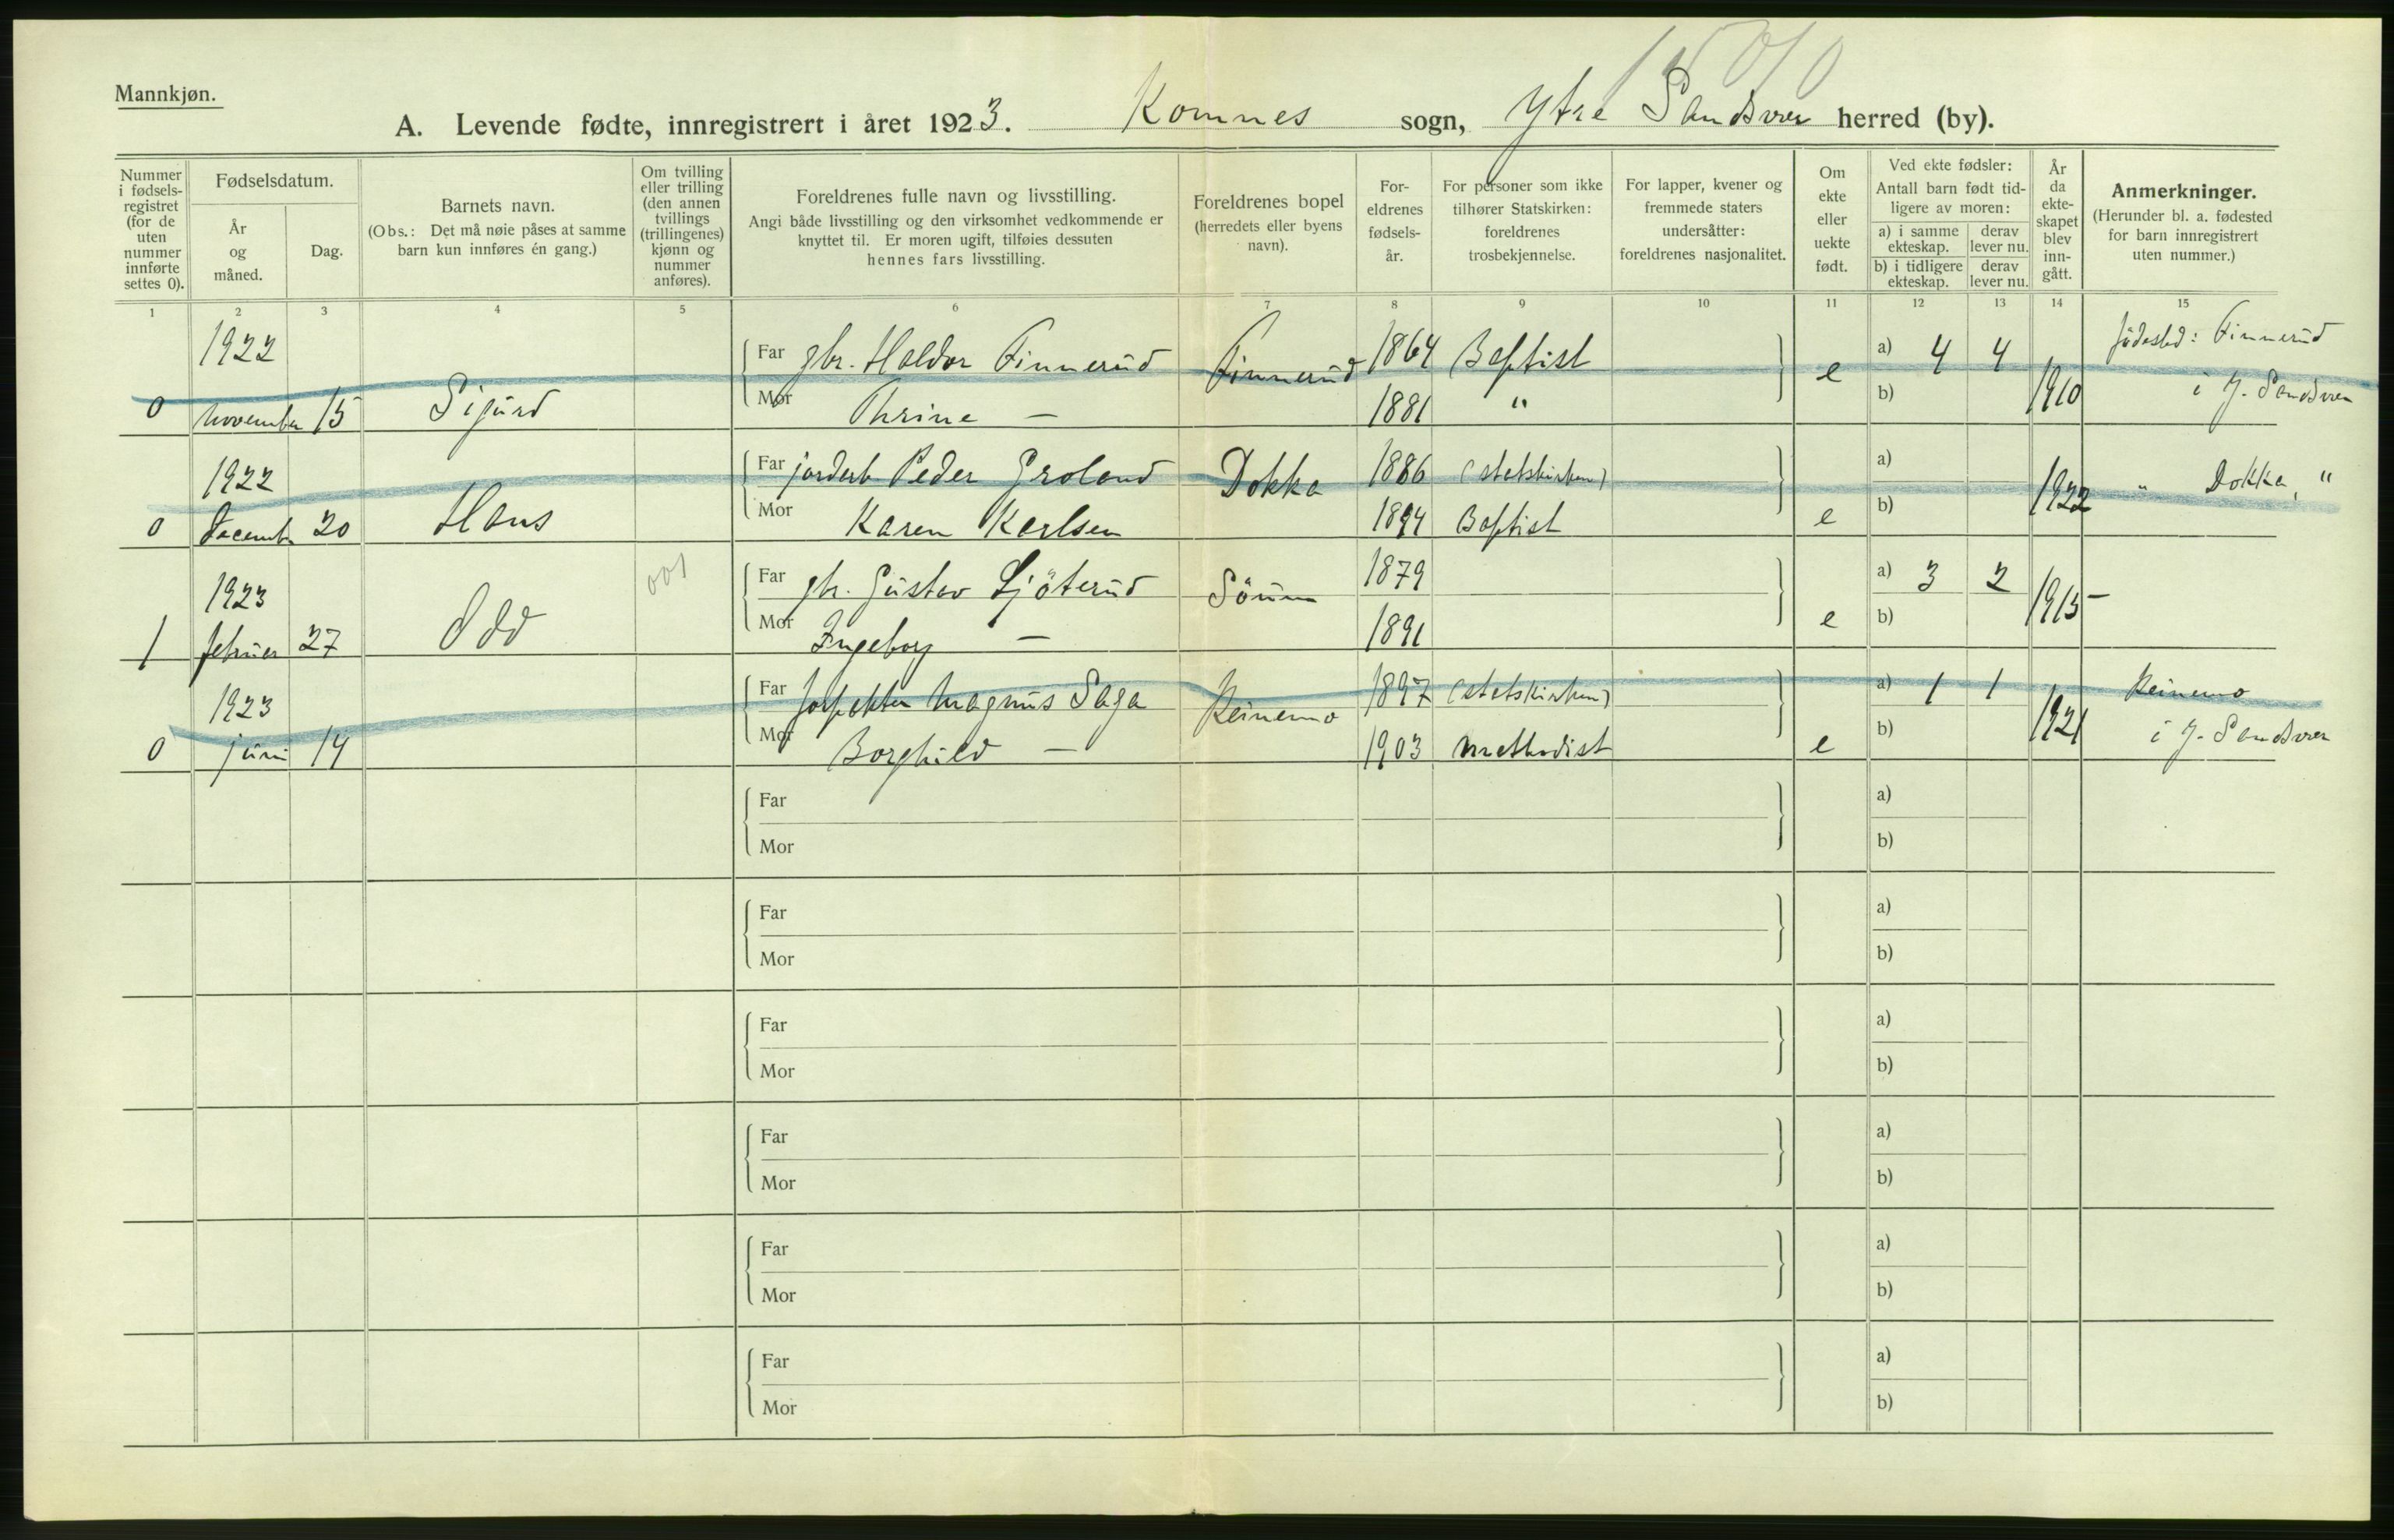 Mannkjøn.
A. Levende fødte, innregistrert i året 1923. Komnes sogn, Ytre Sandsvær herred (by).
Nummer i fødsels-registret (for de uten nummer innførte settes 0).
Fødselsdatum.
År og måned.
Dag.
Barnets navn.
(Obs.: Det må nøie påses at samme barn kun innføres én gang.)
Om tvilling eller trilling (den annen tvillings (trillingenes) kjønn og nummer anføres).
Foreldrenes fulle navn og livsstilling.
Angi både livsstilling og den virksomhet vedkommende er knyttet til. Er moren ugift, tilføies dessuten hennes fars livsstilling.
Foreldrenes bopel (herredets eller byens navn).
For-eldrenes fødsels-år.
For personer som ikke tilhører Statskirken: foreldrenes trosbekjennelse.
For lapper, kvener og fremmede staters undersåtter: foreldrenes nasjonalitet.
Om ekte eller uekte født.
Ved ekte fødsler:
Antall barn født tid-ligere av moren:
a) i samme ekteskap. derav lever nu.
b) i tidligere ekteskap. derav lever nu.
År da ekte-skapet blev inn-gått.
Anmerkninger.
(Herunder bl. a. fødested for barn innregistrert uten nummer.)
1 2 3 4 5 6 7 8 9 10 11 12 13 14 15
1922 Far gbr. Haldor Finnerud Finnerud 1864 Baptist a) 4 4 fødested: Finnerud
0 november 15 Sigurd Mor Thrine — 1881 " e b) 1910 i Y. Sandsvær
1922 Far jordarb Peder Groland Dokka 1886 (statskirken) a) 1922 " Dokka, "
0 december 20 Hans Mor Karen Karlsen 1894 Baptist e b)
1923 001 Far gbr. Gustav Ljøterud Sörum 1879 a) 3 2 1915
1 februar 27 Odd Mor Ingeborg — 1891 e b)
1923 Far forpakter Magnus Saga Reinemo 1897 (statskirken) a) 1 1 1921 Reinemo
0 juni 14 Mor Borghild — 1903 methodist e b) i Y. Sandsvær
Far a)
Mor b)
Far a)
Mor b)
Far a)
Mor b)
Far a)
Mor b)
Far a)
Mor b)
Far a)
Mor b)